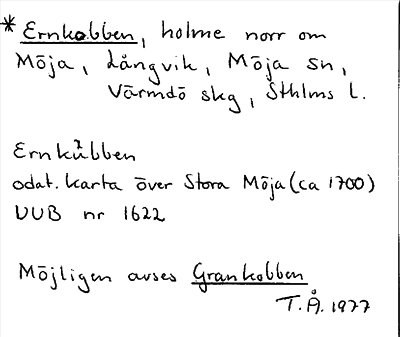 * Ernkobben, holme norr om
Möja, Långvik, Möja sn,
Värmdö skg, Sthlms l.
Ernkübben
odat. karta över Stora Möja (ca 1700)
UUB nr 1622
Möjligen avses Grankobben
T.Å. 1977